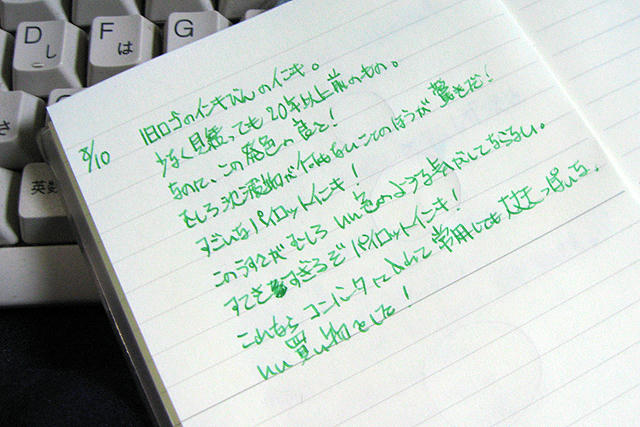 D
し
F
は
G
き
さ
英数
8/10
旧ロゴのインキびんのインキ。
少なく見積っても20年以上前のもの。
なのに、この発色の良さ!
むしろ沈澱物が何もないことのほうが驚きだ!
すごいなパイロットインキ!
このうすさがむしろいい色のような気がしてならない。
すてきすぎるぞパイロットインキ!
これならコンバータに入れて常用しても大丈夫っぽいな。
いい買い物をした!